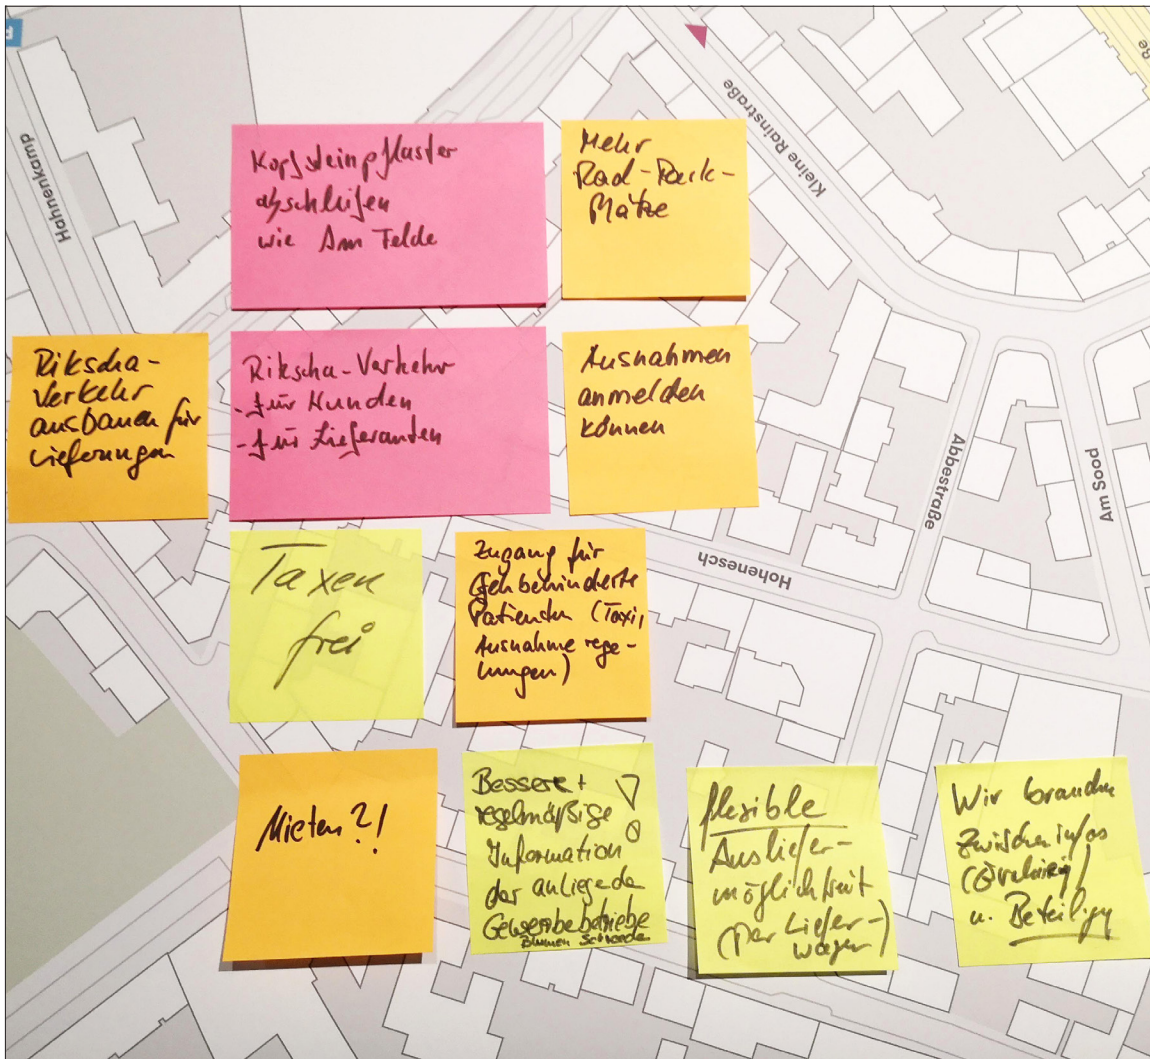 Hahnenkamp
Kleine Rainstraße
Kopfsteinpflaster
abschleifen
wie Am Felde
Mehr
Rad-Park-
Plätze
Rikscha-
Verkehr
ausbauen für
Lieferungen
Rikscha-Verkehr
- für Kunden
- für Lieferanten
Ausnahmen
anmelden
können
Abbestraße
Am Sood
Hohenesch
Taxen
frei
Zugang für
Gehbehinderte
Patienten (Taxi,
Ausnahme rege-
lungen)
Mieten?!
Bessere +
regelmäßige
Information
der anliegende
Gewerbebetriebe
Blumen Schroeder
flexible
Ausliefer-
möglichkeit
(Per Liefer-
wagen)
Wir brauchen
Zwischeninfos
u. Beteiligg